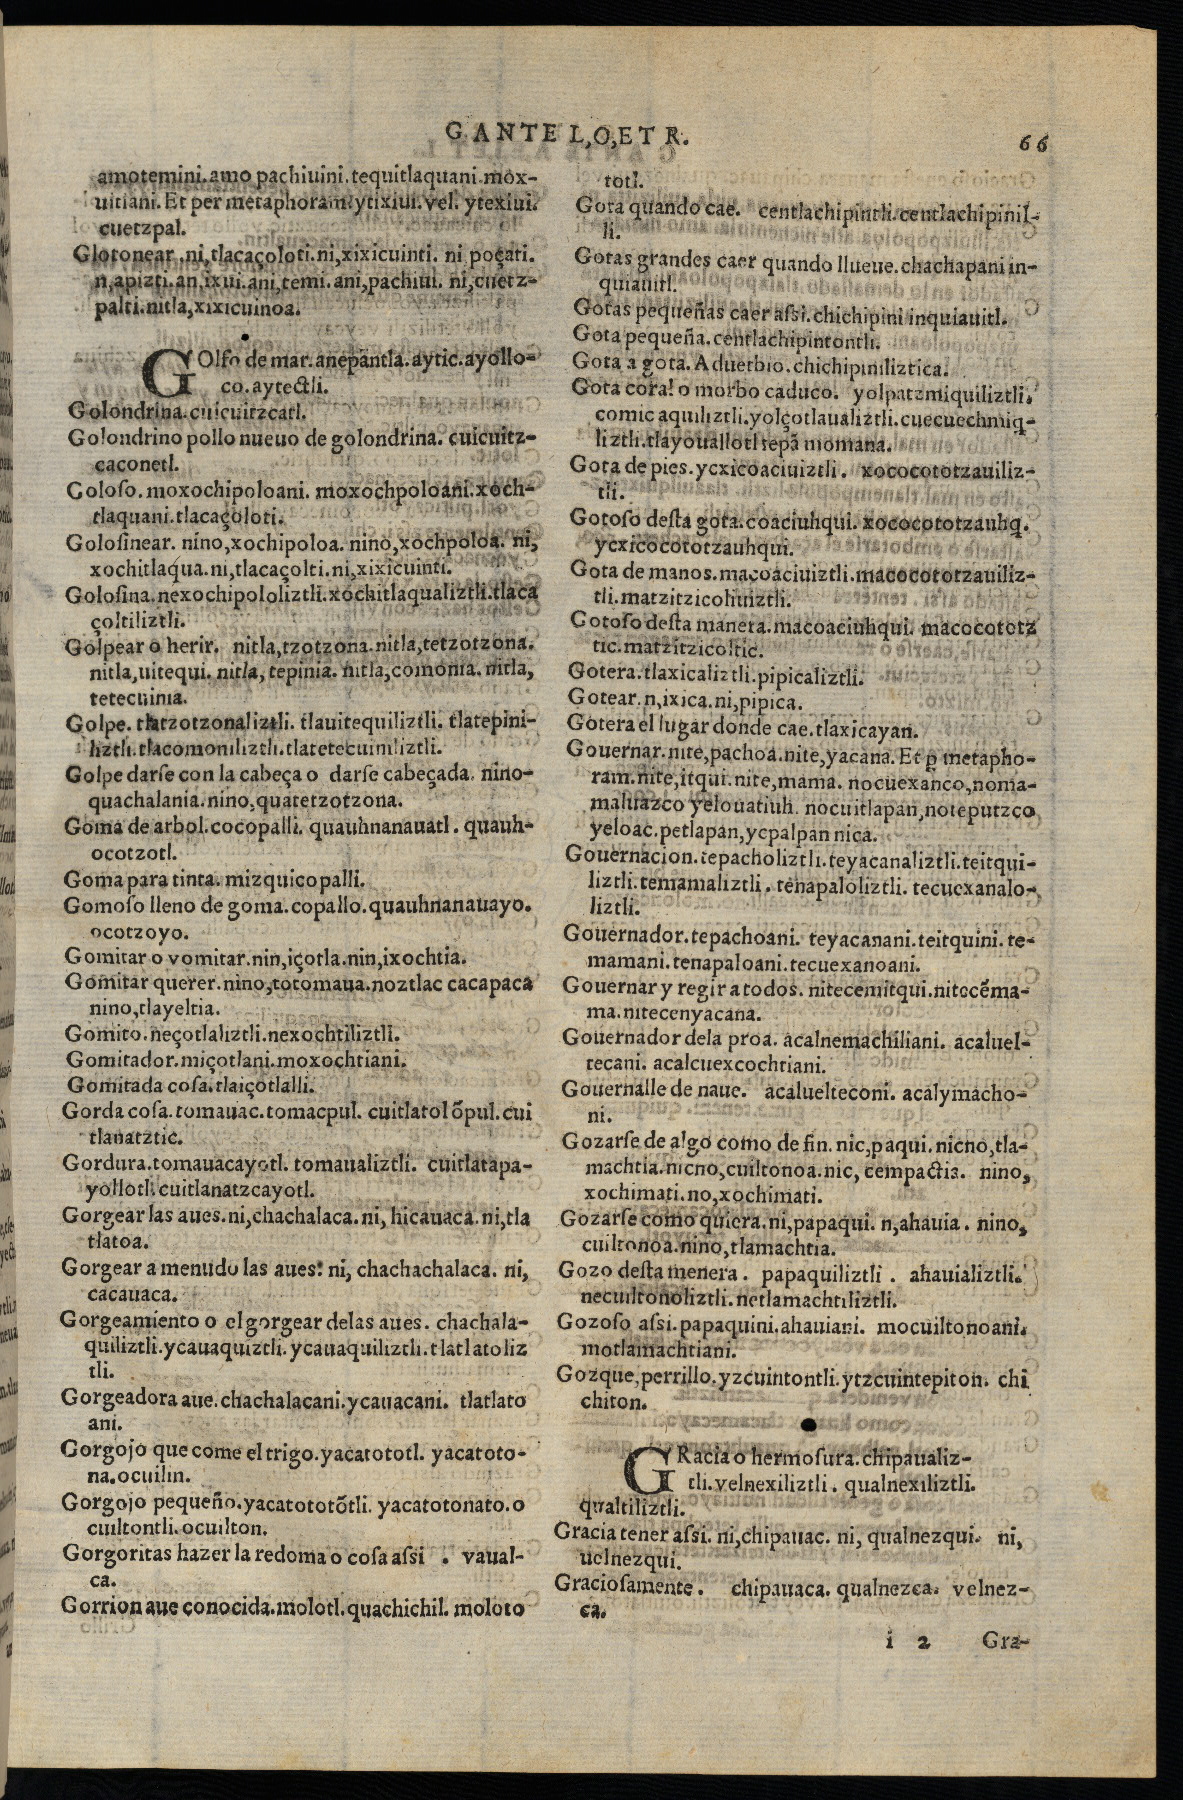 G ANTE L,O,ET R.
66
amotemini.amo pachiuini.tequitlaquani.mox-
uitiani.Et per metaphoram.ytixiui.vel. ytexiui.
cuetzpal.
Glotonear .ni,tlacaçoloti.ni,xixicuinti. ni poçati.
n,apizti.an,ixui.ani,temi.ani,pachiui. ni,cuetz-
palti.nitla,xixicuinoa.
GOlfo de mar.anepãntla.aytic.ayollo-
co.aytectli.
Golondrina.cuicuitzcatl.
Golondrino pollo nueuo de golondrina. cuicuitz-
caconetl.
Goloso.moxochipoloani. moxochpoloani.xoch-
tlaquani.tlacaçoloti.
Golosinear. nino,xochipoloa. nino,xochpoloa. ni,
xochitlaqua.ni,tlacaçolti.ni,xixicuinti.
Golosina.nexochipololiztli.xochitlaqualiztli.tlaca
çoltiliztli.
Golpear o herir. nitla,tzotzona.nitla,tetzotzona.
nitla,uitequi. nitla, tepinia. nitla,comonia. nitla,
tetecuinia.
Golpe. tlatzotzonaliztli. tlauitequiliztli. tlatepini-
liztli.tlacomoniliztli.tlatetecuiniliztli.
Golpe darse con la cabeça o darse cabeçada. nino-
quachalania.nino,quatetzotzona.
Goma de arbol.cocopalli. quauhnanauatl. quauh-
ocotzotl.
Goma para tinta. mizquicopalli.
Gomoso lleno de goma.copallo.quauhnanauayo.
ocotzoyo.
Gomitar o vomitar.nin,içotla.nin,ixochtia.
Gomitar querer.nino,totomaua.noztlac cacapaca
nino,tlayeltia.
Gomito.neçotlaliztli.nexochtiliztli.
Gomitador.miçotlani.moxochtiani.
Gomitada cosa.tlaiçotlalli.
Gorda cosa.tomauac.tomacpul. cuitlatolõpul.cui
tlanatztic.
Gordura.tomauacayotl. tomaualiztli. cuitlatapa-
yollotl.cuitlanatzcayotl.
Gorgear las aues.ni,chachalaca.ni, hicauaca.ni,tla
tlatoa.
Gorgear a menudo las aues: ni, chachachalaca. ni,
cacauaca.
Gorgeamiento o el gorgear delas aues. chachala-
quiliztli.ycauaquiztli.ycauaquiliztli.tlatlatoliz
tli.
Gorgeadora aue.chachalacani.ycauacani. tlatlato
ani.
Gorgojo que come el trigo.yacatototl. yacatoto-
na.ocuilin.
Gorgojo pequeño.yacatototõtli. yacatotonato.o
cuiltontli.ocuilton.
Gorgoritas hazer la redoma o cosa assi . vaual-
ca.
Gorrion aue conocida.molotl.quachichil. moloto
totl.
Gota quando cae. centlachipintli.centlachipinil-
li.
Gotas grandes caer quando llueue.chachapani in-
quiauitl.
Gotas pequeñas caer assi.chichipini inquiauitl.
Gota pequeña.centlachipintontli.
Gota a gota. Aduerbio.chichipiniliztica.
Gota coral o morbo caduco. yolpatzmiquiliztli.
comic aquiliztli.yolçotlaualiztli.cuecuechmiq-
liztli.tlayouallotl tepã momana.
Gota de pies.ycxicoaciuiztli. xocococototzauiliz-
tli.
Gotoso desta gota.coaciuhqui. xococototzauhq̃.
ycxicocototzauhqui.
Gota de manos.macoaciuiztli.macocototzauiliz-
tli.matzitzicohuiztli.
Gotoso desta manera.macoaciuhqui. macocototz
tic.matzitzicoltic.
Gotera.tlaxicaliztli.pipicaliztli.
Gotear.n,ixica.ni,pipica.
Gotera el lugar donde cae.tlaxicayan.
Gouernar.nite,pachoa.nite,yacana.Et p̱ metapho-
ram.nite,itqui.nite,mama. nocuexanco,noma-
maluazco yelouatiuh. nocuitlapan,noteputzco
yeloac.petlapan,ycpalpan nica.
Gouernacion.tepacholiztli.teyacanaliztli.teitqui-
liztli.temamaliztli. tenapaloliztli. tecuexanalo-
liztli.
Gouernador.tepachoani. teyacanani.teitquini. te-
mamani.tenapaloani.tecuexanoani.
Gouernar y regir a todos. nitecemitqui.nitecẽma-
ma.nitecenyacana.
Gouernador dela proa. acalnemachiliani. acaluel-
tecani. acalcuexcochtiani.
Gouernalle de naue. acaluelteconi. acalymacho-
ni.
Gozarse de algo como de fin. nic,paqui.nicno,tla-
machtia.nicno,cuiltonoa.nic, cempactia. nino,
xochimati.no,xochimati.
Gozarse como quiera.ni,papaqui. n,ahauia. nino,
cuiltonoa.nino,tlamachtia.
Gozo desta menera. papaquiliztli . ahauializtli.
necuiltonoliztli.netlamachtiliztli.
Gozoso assi.papaquini.ahauiani. mocuiltonoani.
motlamachtiani.
Gozque,perrillo.yzcuintontli.ytzcuintepiton. chi
chiton.
GRacia o hermosura.chipaualiz-
tli.velnexiliztli. qualnexiliztli.
qualtiliztli.
Gracia tener assi. ni,chipauac. ni, qualnezqui. ni,
uelnezqui.
Graciosamente. chipauaca. qualnezca. velnez-
ca.
i 2 Gra-